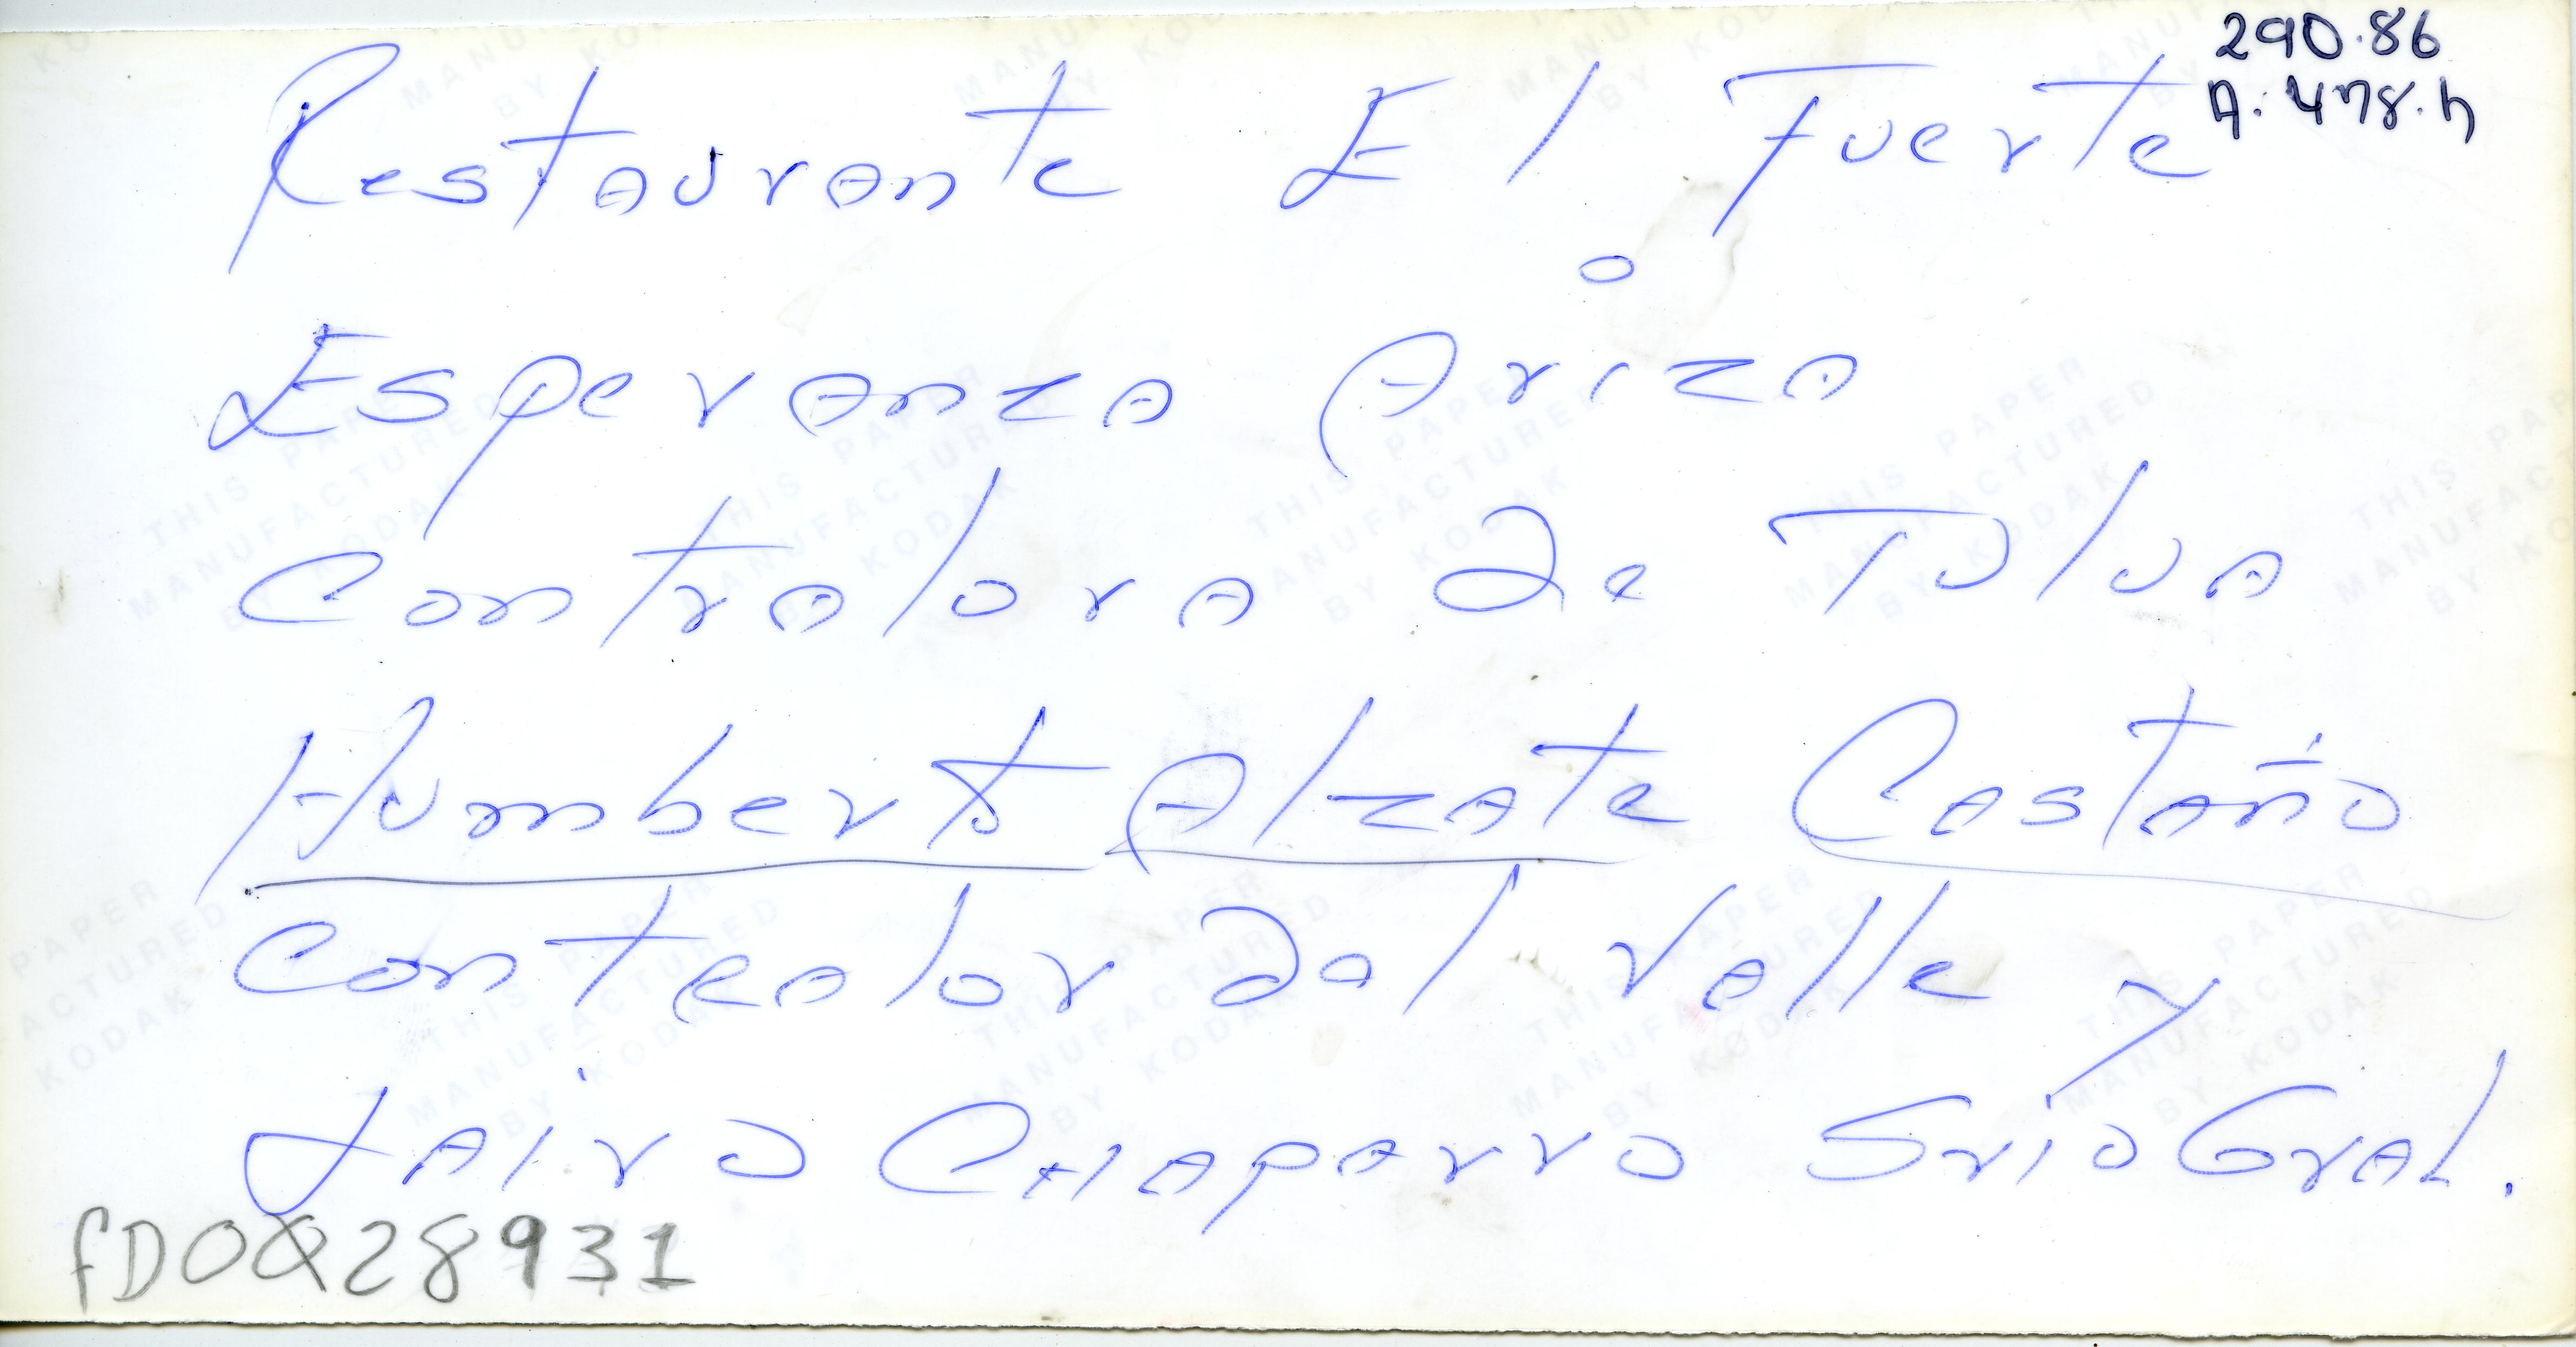 290.86
A. 478.h
Restaurante El Fuerte
Esperanza Ariza
Contralora de Tulua
Humberto Alzate Castaño
Contralor del Valle y
Jairo Chaparro Srio Gral.
THIS PAPER
MANUFACTURED
BY KODAK